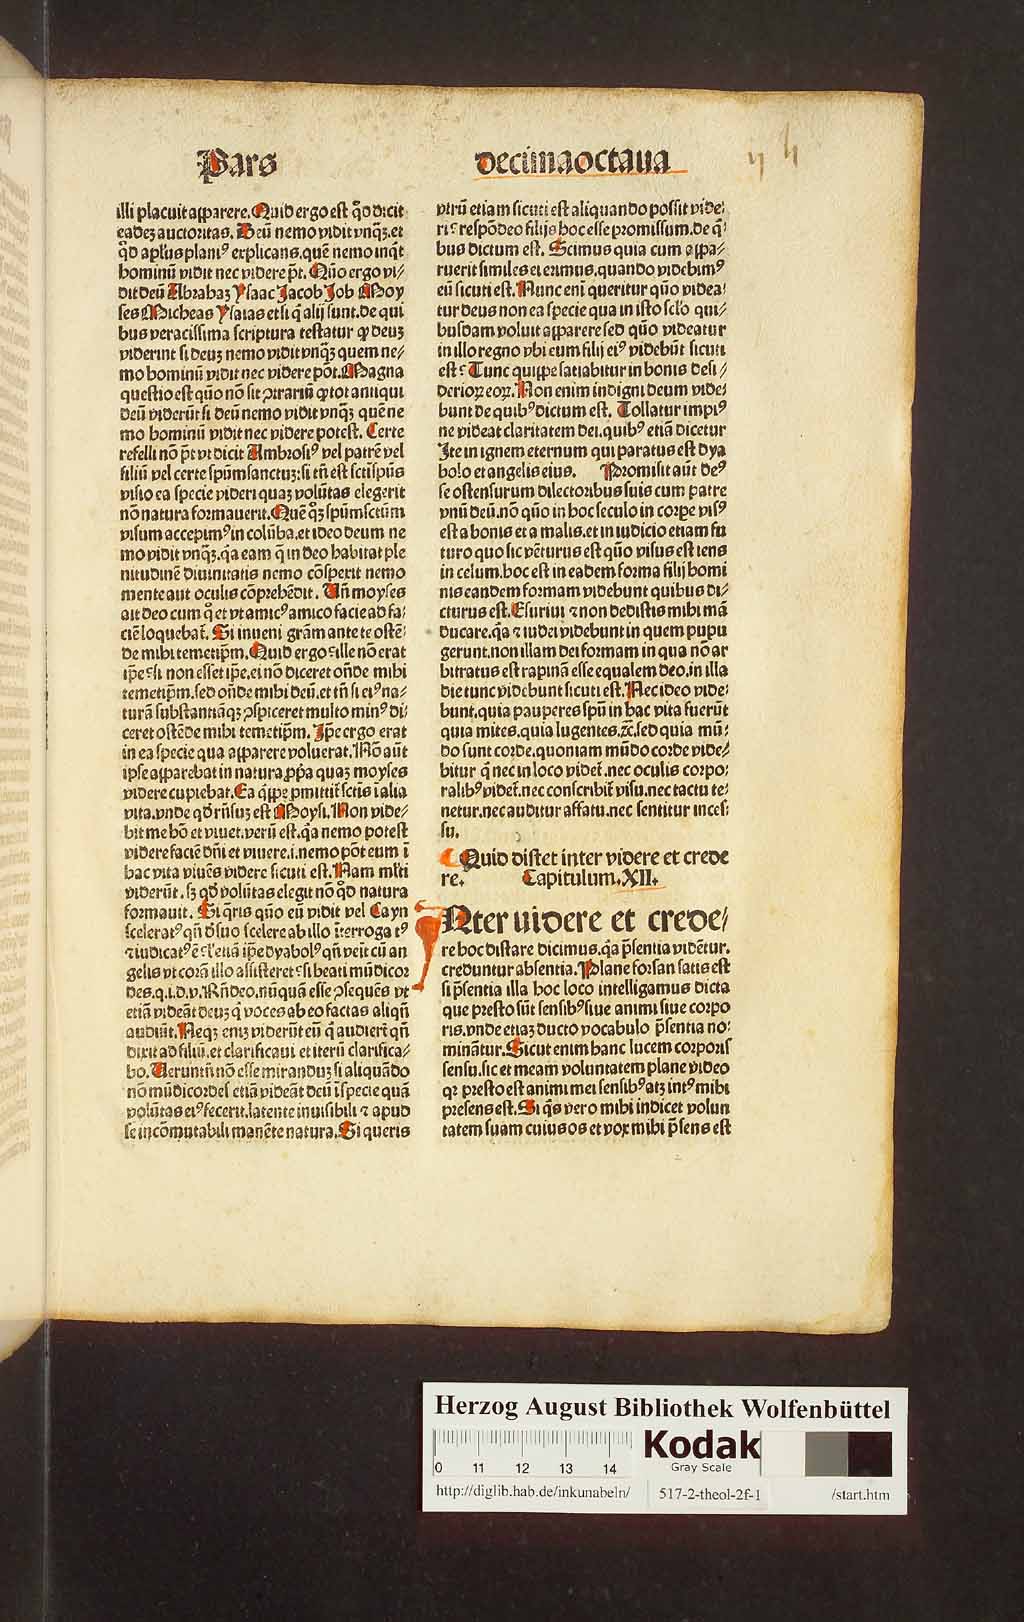 Pars
decimaoctaua
illi placuit apparere. Quid ergo est qd̄ dicit
eadeʒ auctoritas. Deū nemo vidit vnqʒ. et
qd̄ apl'us planiꝰ explicans. quē nemo inqͭ
hominū vidit nec videre pt̄. Quō ergo vi⸗
dit deū Abrahaʒ Ysaac Jacob Job Moy
ses Micheas Ysaias et si q̄ alij sunt. de qui
bus veracissima scriptura testatur ꝙ deuʒ
viderint si deuʒ nemo vidit vnqʒ quem ne⸗
mo hominū vidit nec videre pōt. Magna
questio est quō nō sit ꝯtrariū ꝙ tot antiqui
deū viderūt si deū nemo vidit vnqʒ quē ne
mo hominū vidit nec videre potest. Certe
refelli nō pt̄ vt dicit Ambrosiꝰ vel patrē vel
filiū vel certe spūmsanctuʒ: si tn̄ est sctispūs
visio ea specie videri quaʒ volūtas elegerit
nō natura formauerit. Quē qʒ spūmsctūm
visum accepimꝰ in colūba. et ideo deum ne
mo vidit vnqʒ. qa eam q̄ in deo habitat ple
nitudinē diuinitatis nemo cōspexit nemo
mente aut oculis cōprehēdit. Vn̄ moyses
ait deo cum q̄ et vt amicꝰ amico facie ad fa⸗
ciē loquebat̄. Si inueni grām ante te ostē⸗
de mihi temetip̄m. Quid ergo ille nō erat
ip̄e si non esset ip̄e. ei nō diceret on̄de mihi
temetip̄m. sed on̄de mihi deū. et tn̄ si eiꝰ na⸗
turā substantiāqʒ ꝯspiceret multo minꝰ di⸗
ceret ostēde mihi temetip̄m. Ip̄e ergo erat
in ea specie qua apparere voluerat. Nō aūt
ipse apparebat in natura ꝓpa quaʒ moyses
videre cupiebat. Ea qͥppe ꝓmittit̄ scīs ī alia
vita. vnde qd̄ rn̄suʒ est Moysi. Non vide⸗
bit me hō et viuet. verū est. qa nemo potest
videre faciē dn̄i et viuere. i. nemo pōt eum ī
hac vita viuēs videre sicuti est. Nam ml'ti
viderūt. sʒ qd̄ volūtas elegit nō qd̄ natura
formauit. Si qͥris quō eū vidit vel Cayn
sceleratꝰ qn̄ d̄ suo scelere ab illo īterrogatꝰ
⁊ iudicatꝰ ē vl' etiā ip̄e dyabolꝰ qn̄ veīt cū an
gelis vt corā illo assisteret si beati mūdicor
des. q. i. d. v. Rn̄deo. nūquā esse ꝯsequēs vt
etiā videāt deuʒ q̄ voces ab eo factas aliqn̄
audiūt. Neqʒ eniʒ viderūt eū q̄ audierūt qn̄
dixit ad filiū. et clarificaui et iterū clarifica⸗
bo. Veruntn̄ nō esse miranduʒ si aliquādo
nō mūdicordes etiā videāt deū ī specie quā
volūtas eiꝰ fecerit. latente inuisibili ⁊ apud
se incōmutabili manēte natura. Si queris
vtrū etiam sicuti est aliquando possit vide⸗
ri respōdeo filijs hoc esse promissum. de qͥ⸗
bus dictum est. Scimus quia cum appa⸗
ruerit similes ei erimus. quando videbimꝰ
eū sicuti est. Nunc enī queritur quō videa⸗
tur deus non ea specie qua in isto scl'o qui⸗
busdam voluit apparere sed quō videatur
in illo regno vbi eum filij eiꝰ videbūt sicuti
est Tunc quippe satiabitur in bonis desi⸗
derioꝝ eoꝝ. Non enim indigni deum vide⸗
bunt de quibꝰ dictum est. Tollatur impiꝰ
ne videat claritatem dei. quibꝰ etiā dicetur
Ite in ignem eternum qui paratus est dya
bolo et angelis eius. Promisit aūt deꝰ
se ostensurum dilectoribus suis cum patre
vnū deū. nō quō in hoc seculo in corpe visꝰ
est a bonis et a malis. et in iudicio etiam fu
turo quo sic vēturus est quō visus est iens
in celum. hoc est in eadem forma filij homi
nis eandem formam videbunt quibus di⸗
cturus est. Esuriui ⁊ non dedistis mihi mā
ducare. qa ⁊ iudei videbunt in quem pupu
gerunt. non illam dei formam in qua nō ar
bitratus est rapinā esse equalem deo. in illa
die tunc videbunt sicuti est. Nec ideo vide⸗
bunt. quia pauperes spū in hac vita fuerūt
quia mites. quia lugentes. ⁊c̄. sed quia mū⸗
do sunt corde. quoniam mūdo corde vide⸗
bitur q̄ nec in loco videt̄. nec oculis corpo⸗
ralibꝰ videt̄. nec conscribit̄ visu. nec tactu te⸗
netur. nec auditur affatu. nec sentitur inces⸗
su.
Quid distet inter videre et crede
re. Capitulum. XII.
Nter videre et crede⸗
re hoc distare dicimus. qa p̄sentia vidētur.
creduntur absentia. Plane forsan satis est
si p̄sentia illa hoc loco intelligamus dicta
que presto sūt sensibꝰ siue animi siue corpo
ris. vnde etiaʒ ducto vocabulo p̄sentia no⸗
minātur. Sicut enim hanc lucem corporis
sensu. sic et meam voluntatem plane video
qꝛ presto est animi mei sensibꝰ atqʒ intꝰ mihi
presens est. Si qͥs vero mihi indicet volun
tatem suam cuius os et vox mihi p̄sens est
Herzog August Bibliothek Wolfenbüttel
Kodak
Gray Scale
0 11 12 13 14
http://diglib.hab.de/inkunabeln/ 517-2-theol-2f-1 /start.htm